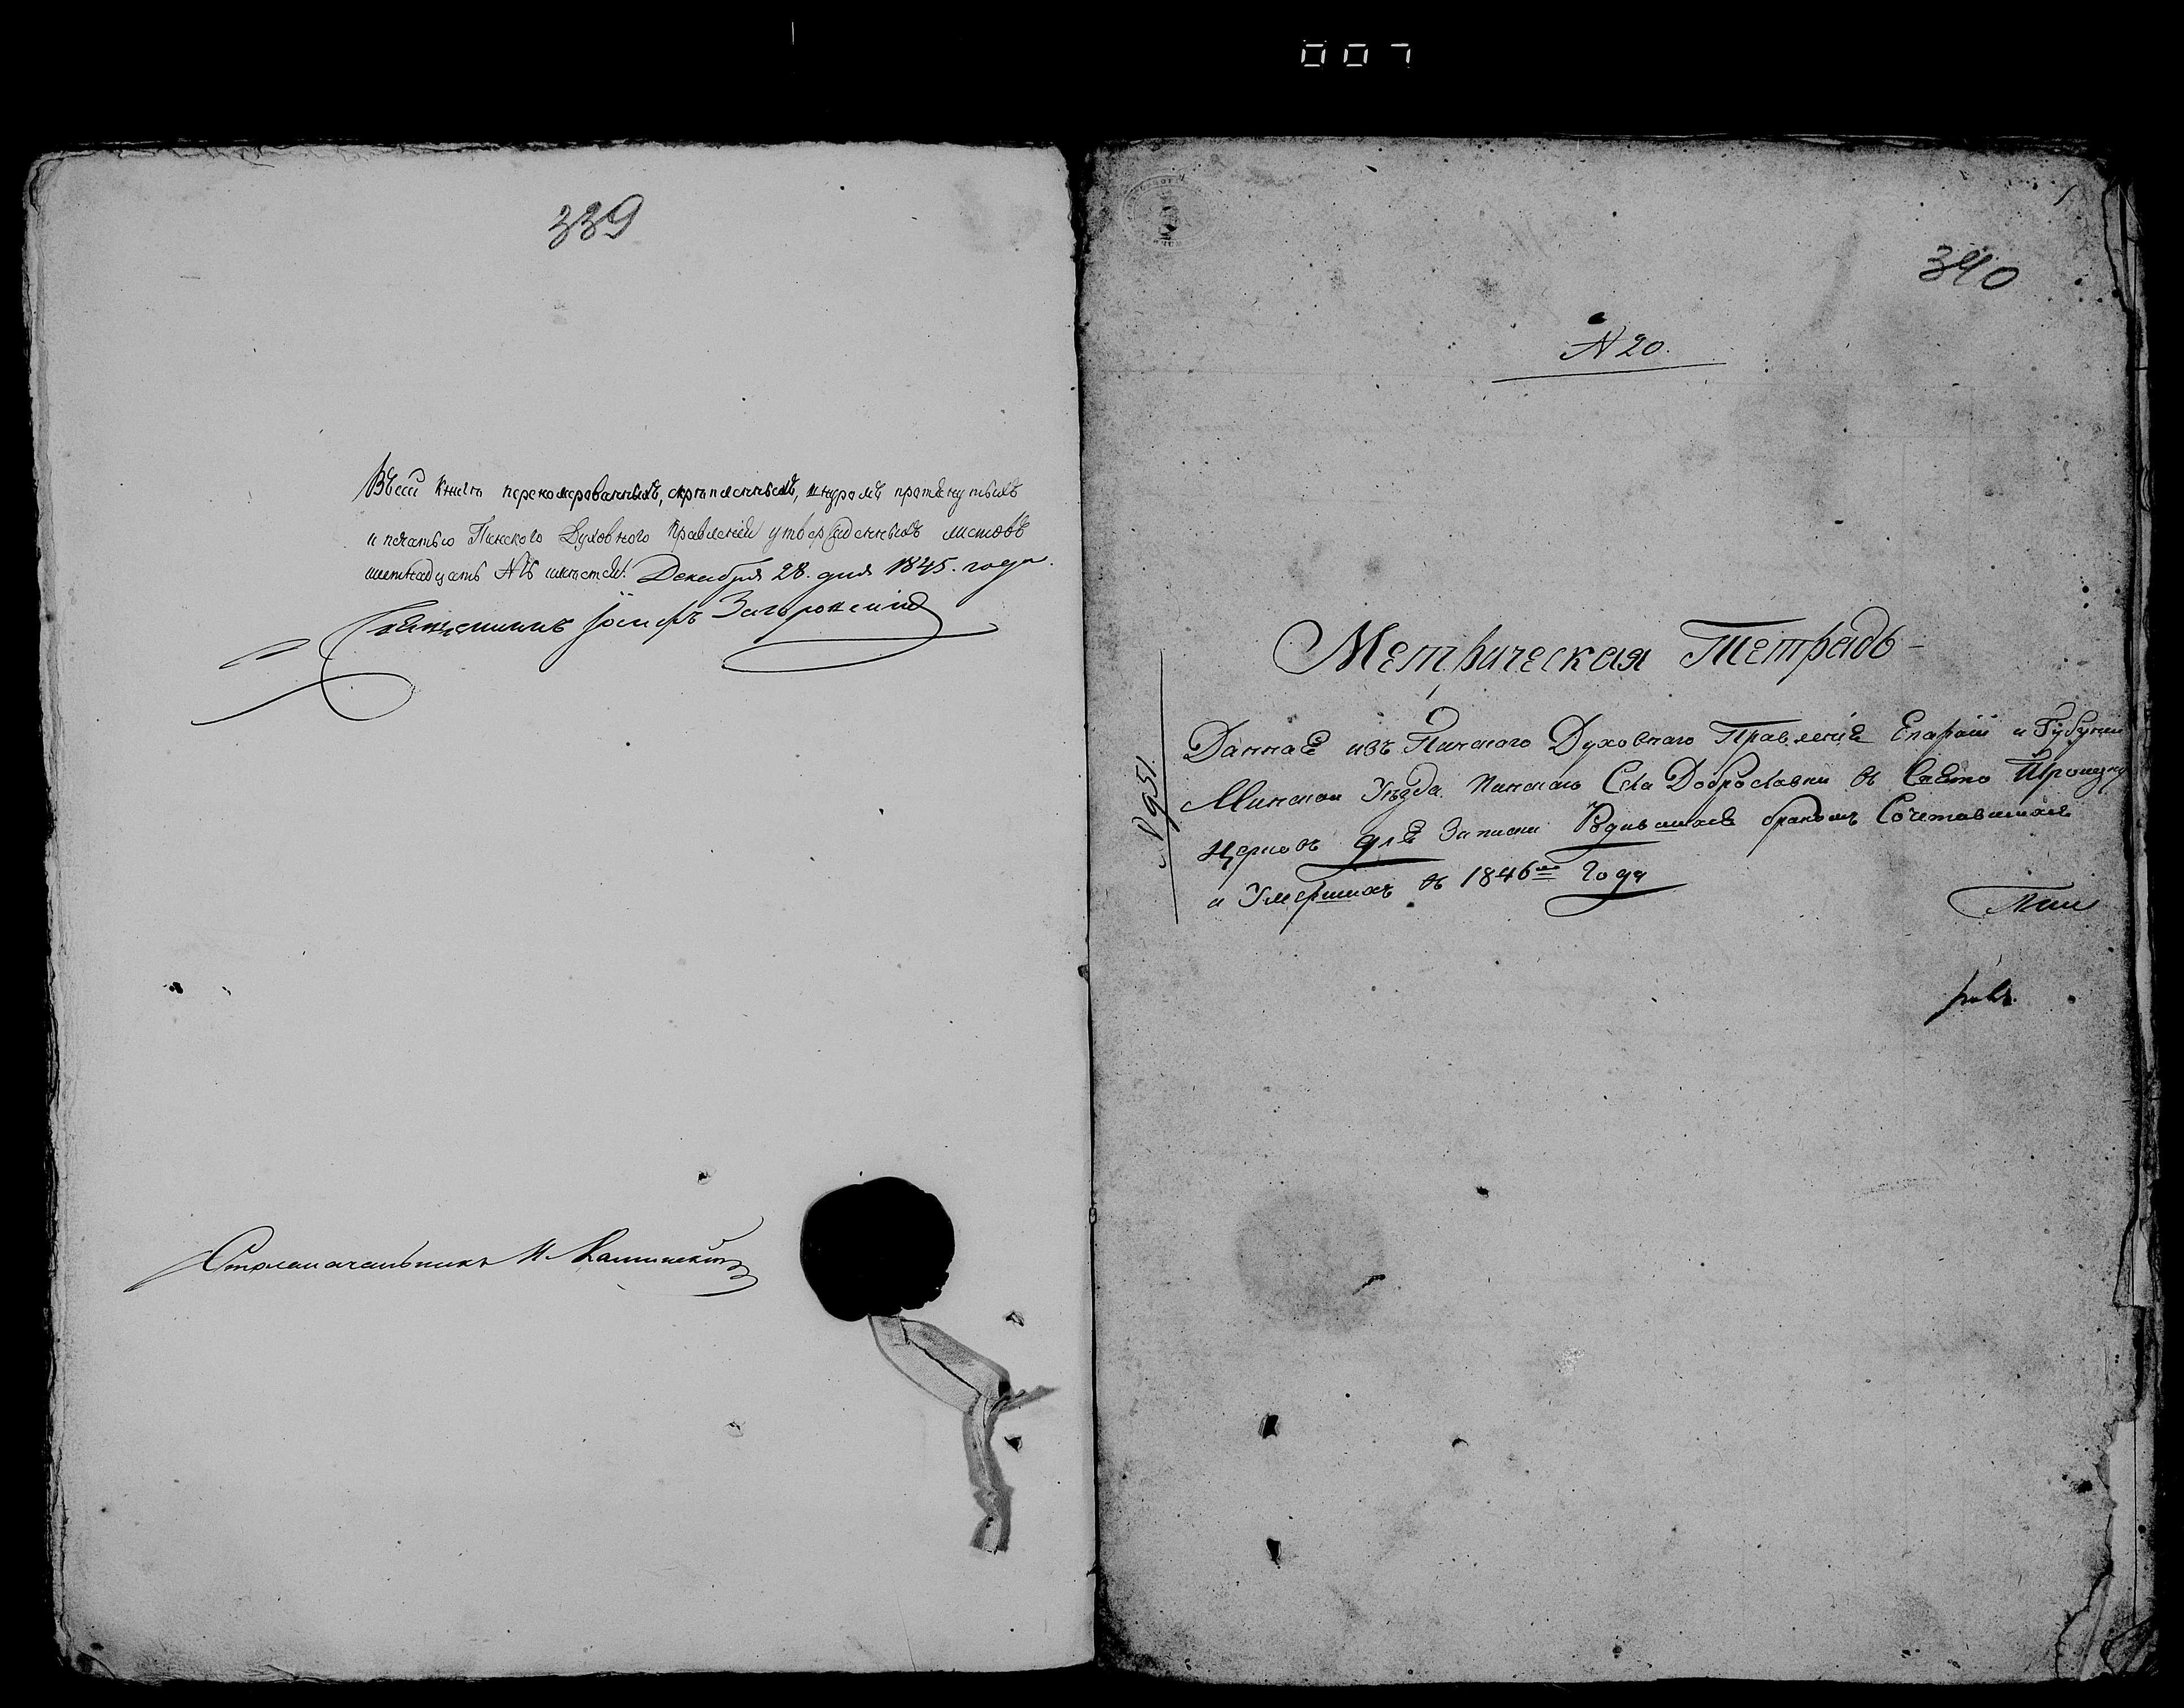 007
339
Въ сей книгѣ перенумерованныхъ, скрѣпленныхъ, шнуромъ протянутыхъ
и печатью Пинского Духовного Правленія утвержденныхъ листовъ
шестнадцать № шестъ. Декабря 28. дня 1845. года.
Священникъ Іосифъ Загоровскій
Столоначальникъ
340
N 20.
Метрическая Тетрадь
Данная изъ Пинского Духовнаго Правленія Епархіи и Губерніи
Минской Уѣзда Пинскаго Села Доброславки въ Свято Троицку
Церковь для Записки Родившихся бракомъ Сочетавшихся
и Умершихъ въ 1846м Года
N 951.